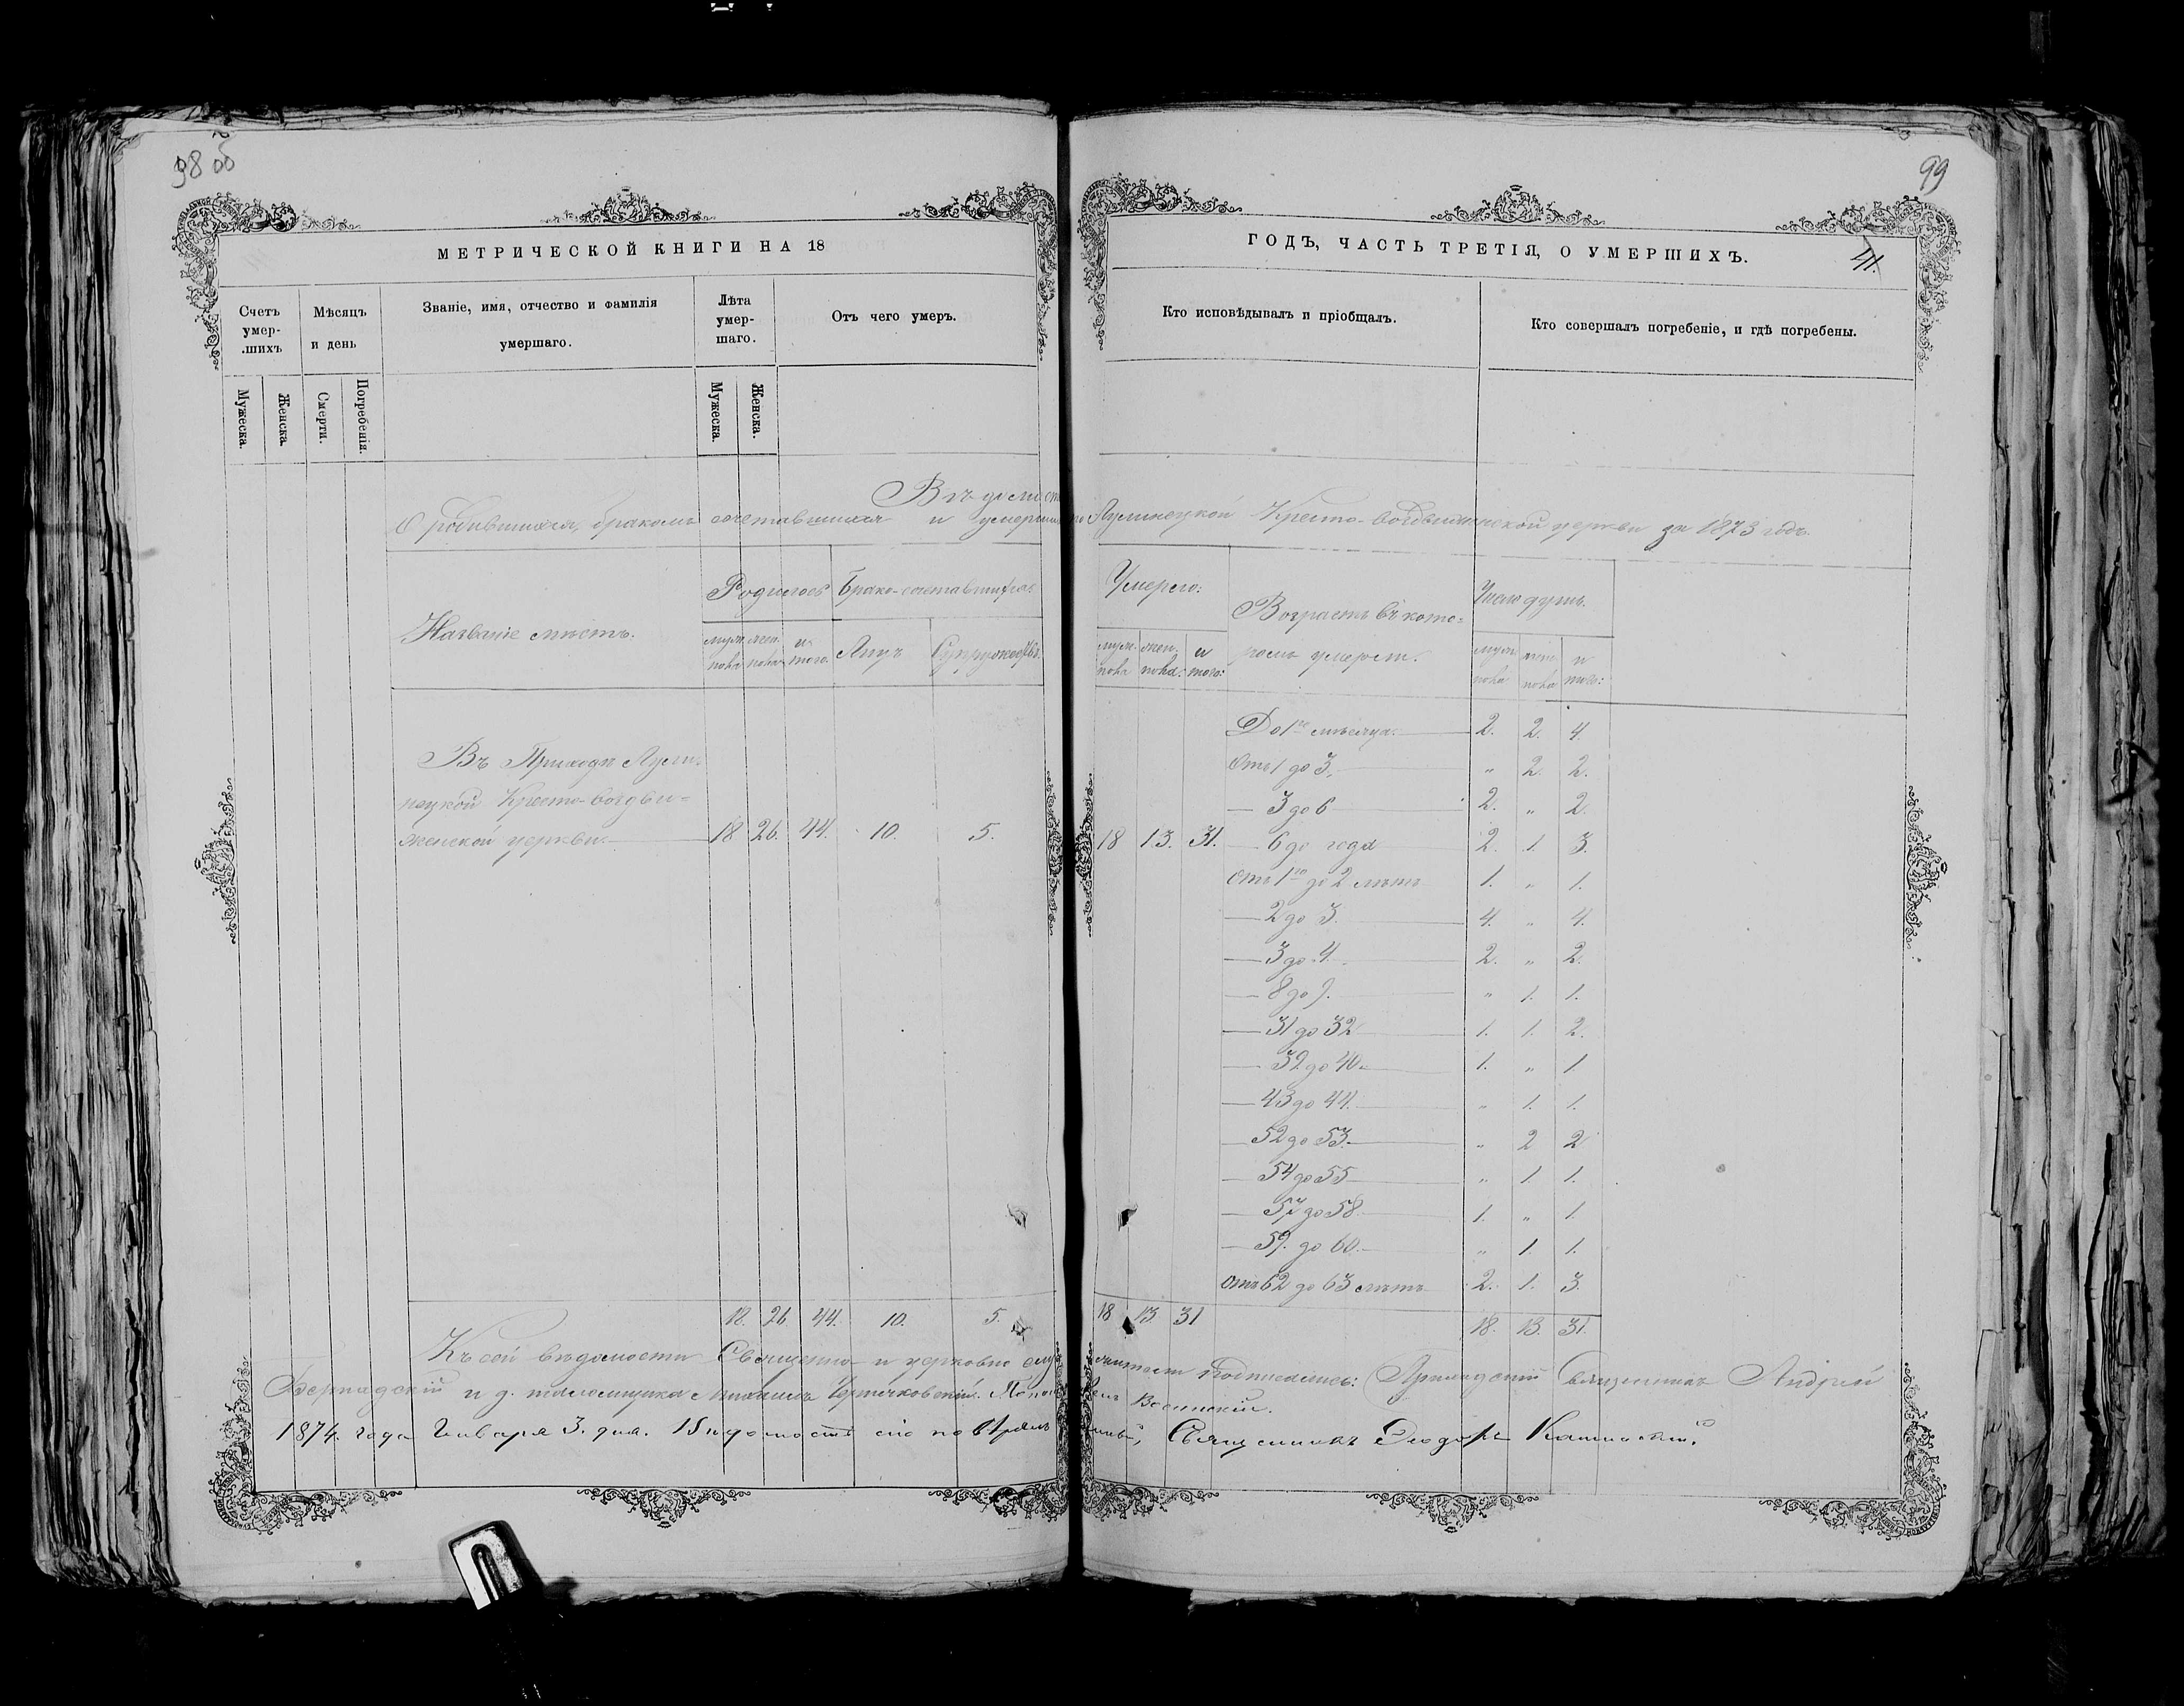 98 об
МЕТРИЧЕСКОЙ КНИГИ НА 18
Счетъ умер-.шихъ
Мѣсяцъ и день
Званіе, имя, отчество и фамилія умершаго.
Лѣта умер-шаго.
Отъ чего умеръ.
Мужеска.
Женска.
Смерти.
Погребенія.
Мужеска.
Женска.
99
ГОДЪ, ЧАСТЬ ТРЕТІЯ, О УМЕРШИХЪ.
41.
Кто исповѣдывалъ и пріобщалъ.
Кто совершалъ погребеніе, и гдѣ погребены.
Вѣдомость
О родившихся, бракомъ сочетавшихся и умершихъ по Кресто-воздвиженской церкви за 1873 годъ.
Названіе мѣстъ.
Родилось
Брако-сочетавшихся
муж. пола
жен. пола
и того.
Лицъ
Супружествъ.
Умерло:
муж. пола
жен. пола:
и того:
Возрастъ въ кото=
ромъ умерли.
Число душъ.
муж. пола
жен. пола
и того:
Въ Приходѣ
Кресто-воздви=
женской церкви. 18 26. 44. 10. 5. 18 13. 31.
До 1го мѣсяца. 2. 2. 4.
Отъ 1 до 3. " 2. 2.
— 3 до 6 2. " 2.
— 6 до года 2. 1. 3.
Отъ 1го до 2 лѣтъ 1. " 1.
— 2 до 3. 4. " 4.
— 3 до 4. 2. " 2.
— 8 до 9. " 1. 1.
— 31 до 32 1. 1. 2.
— 39 до 40. 1. " 1
— 43 до 44. " 1. 1.
— 52 до 53. " 2 2
— 54 до 55 " 1. 1.
— 57 до 58. 1. " 1.
— 59. до 60. " 1. 1.
Отъ 62 до 63 лѣтъ 2. 1. 3.
18. 26 44. 10. 5. 18 13 31 18. 13. 31.
Къ сей вѣдомости Священно и церковно служители подписались: Приходскій Священникъ Андрей
и д. псаломщика Михаилъ
1874. года Января 3. дня. Вѣдомость сію повѣрялъ Священникъ Ѳеодоръ